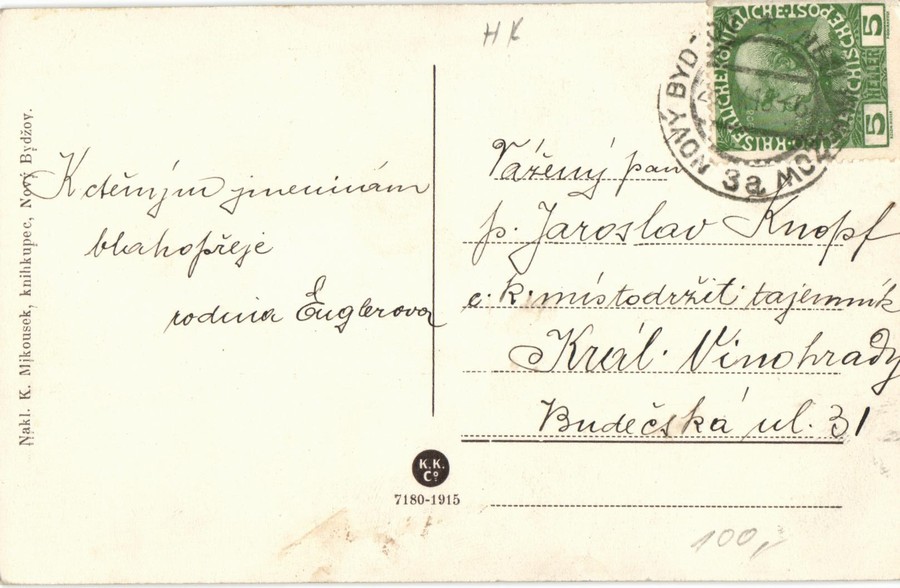 HK
Nakl. K. Mikousek, knihkupec, Nový Bydžov.
K ctěným jmeninám
blahopřeje
rodina Englerova
5 HELLER 5
NOVÝ BYD
3a
Vážený pan
p. Jaroslav Knopf
c. k. místodržit. tajemník
Král. Vinohrady
Budečská ul. 31
K.K.
Cº
7180-1915
100,-